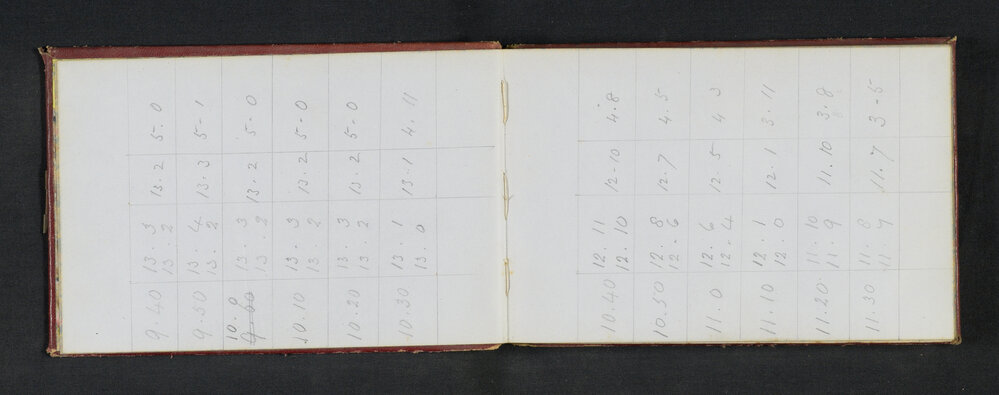 9.40 13.3 13.2 5.0
13.2
9.50 13.4 13.3 5-1
13.2
10.0 13.3 13.2 5.0
9.60 13.2
10.10 13.3 13.2 5-0
13.2
10.20 13.3 13.2 5-0
13.2
10.30 13.1 13-1 4.11
13.0
10.40 12.11 12-10 4.8
12.10
10.50 12.8 12.7 4.5
12-6
11.0 12.6 12-5 4 3
12-4
11.10 12.1 12.1 3.11
12.0
11.20 11.10 11.10 3.8
11.9
11.30 11.8 11.7 3-5